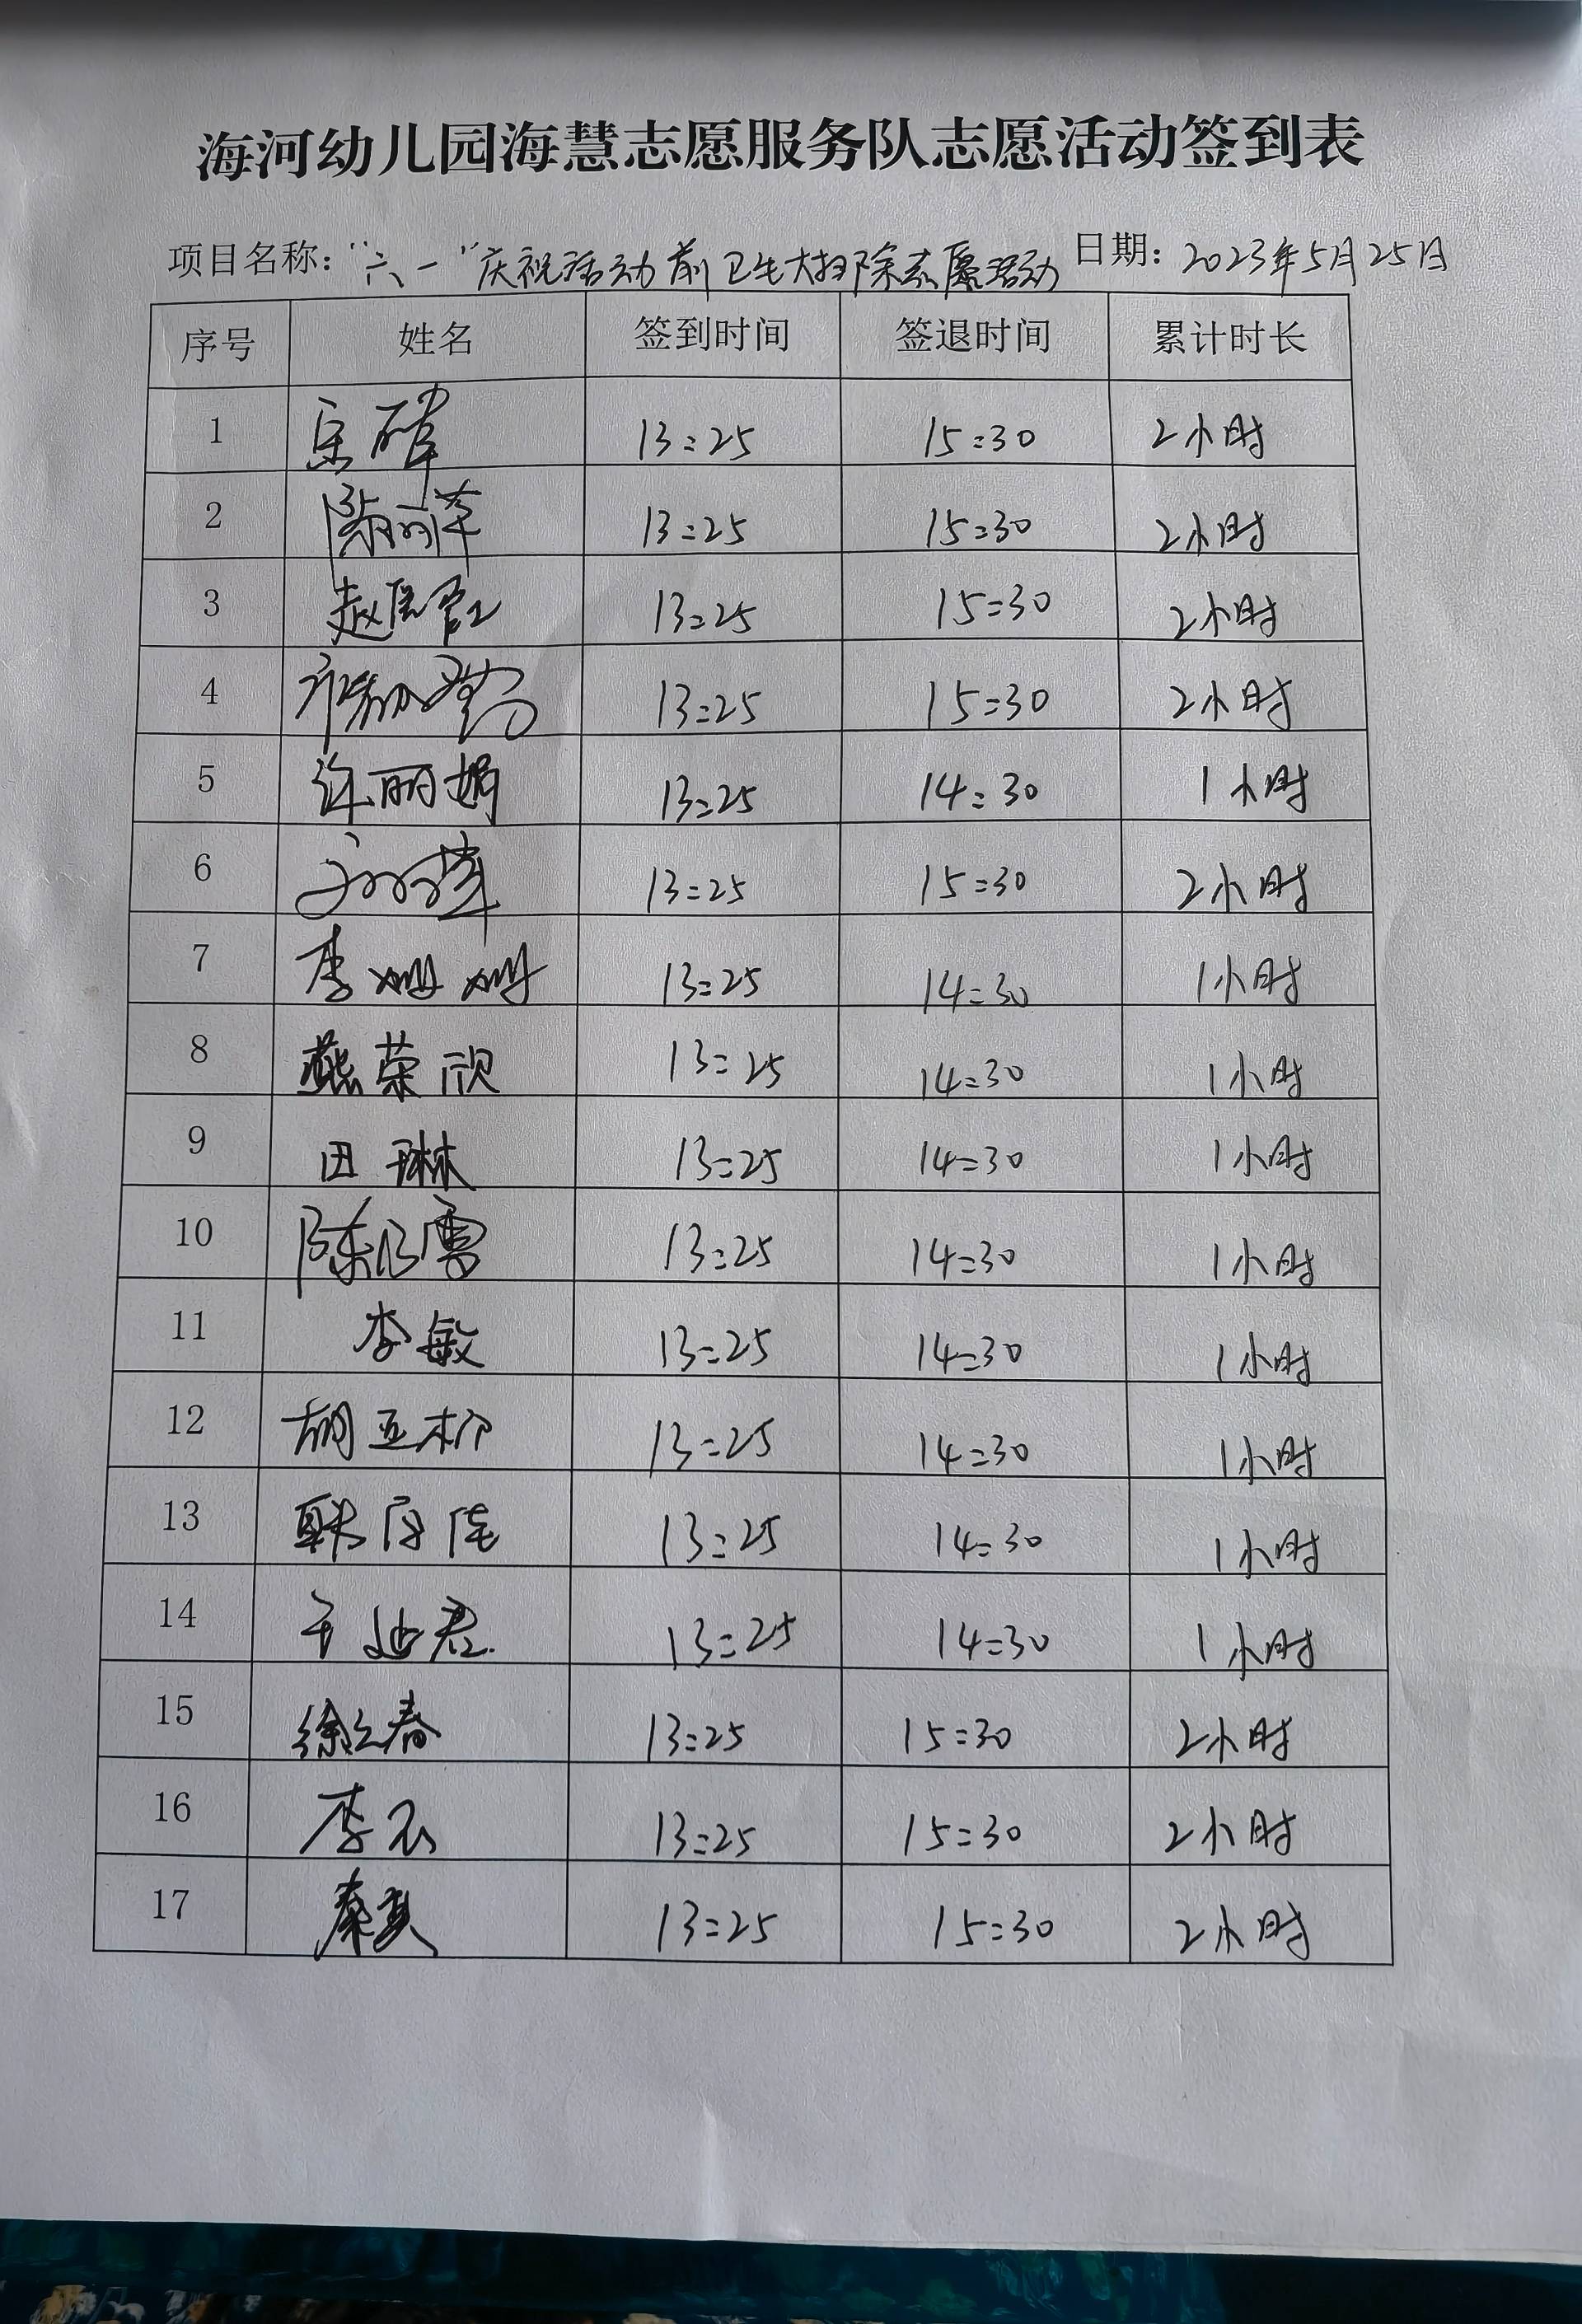 海河幼儿园海慧志愿服务队志愿活动签到表
项目名称：“六一”庆祝活动前卫生大扫除志愿活动 日期：2023年5月25日
序号 姓名 签到时间 签退时间 累计时长
1 13:25 15:30 2小时
2 13:25 15:30 2小时
3 13:25 15:30 2小时
4 13:25 15:30 2小时
5 许丽娟 13:25 14:30 1小时
6 13:25 15:30 2小时
7 李姗姗 13:25 14:30 1小时
8 燕荣欣 13:25 14:30 1小时
9 田琳 13:25 14:30 1小时
10 13:25 14:30 1小时
11 李敏 13:25 14:30 1小时
12 胡亚柳 13:25 14:30 1小时
13 13:25 14:30 1小时
14 13:25 14:30 1小时
15 13:25 15:30 2小时
16 13:25 15:30 2小时
17 13:25 15:30 2小时